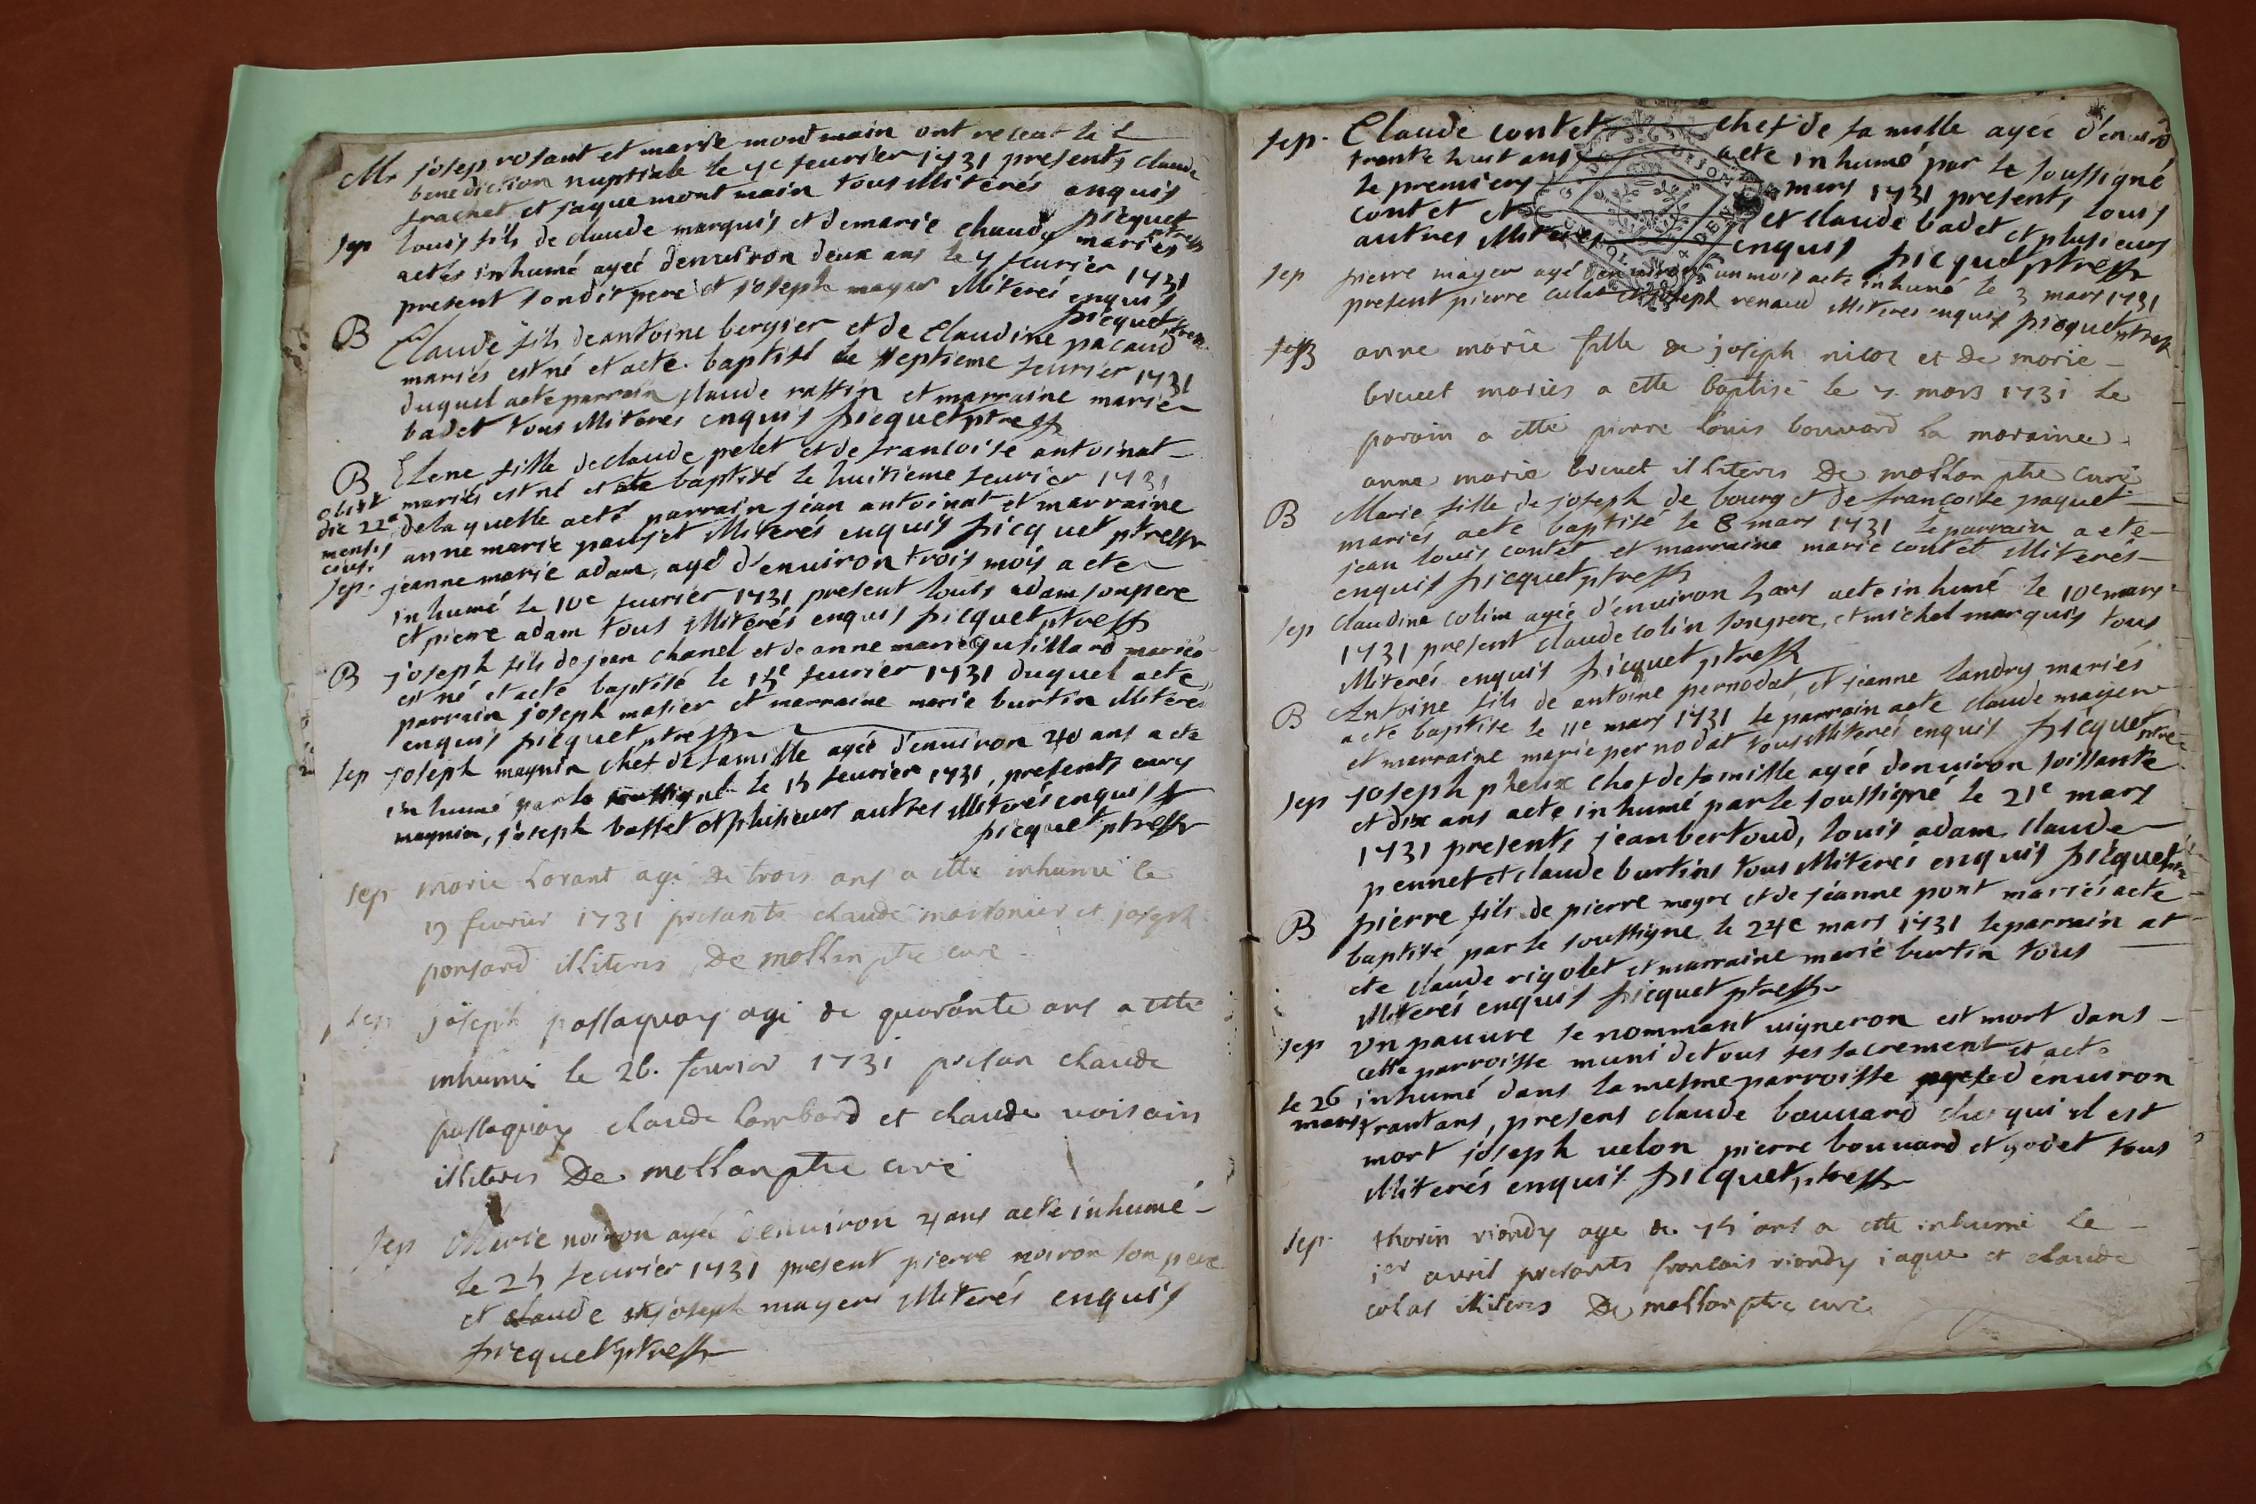 Mr joseph rosant et marie montmain ont receut la
benediction nuptiale le 7e feurier 1731 presents claude
trachet et jaque montmain tous illiterés enquis
picquet ptre
sep louis fils de claude marquis et de marie chaudy mariés
actés inhumé ageé denuiron deux ans le 7 feurier 1731
present sondit pere et joseph mayer illiterés enquis
picquet ptre
B Claude fils de antoine bergier et de Claudine pacaud
mariés est né et acte baptisé le septieme feurier 1731
duquel acté parrain claude raffin et marraine marie
badet tous illiterés enquis picquet ptre
B Elene fille de claude pelet et de francoise antoinat
mariés est né et acte baptisé le huitieme feurier 1731
obiit
die 22a
mensis
de la quelle acté parrain jean antoinat et marraine
anne marie illiterés enquis picquet ptre
sep. jeanne marie adam, ageé d'enuiron trois mois a ete
inhumé le 10e feurier 1731 present louis adam son pere
et pierre adam tous illiterés enquis picquet ptre
B joseph fils de jean chanel et de anne marie mariés
est né et acté baptisé le feurier 1731 duquel acte
parrain joseph masier et marraine marie burtin illiteré
enquis picquet ptre
sep joseph magnin chef de famille ageé d'enuiron 40 ans a ete
inhumé par le soussigné le 15 feurier 1731, presents
magnin, joseph bosset et plusieurs autres illiterés enquis
picquet ptre
sep marie lorant agé de trois ans a etté inhumé le
19 feurier 1731 presants claude et joseph
ponsard illiteres De mollan ptre curé
sep joseph passaquay agé de quarante ans a etté
inhumé le 26. feurier 1731 presan claude
passaquay claude lombard et claude uoisain
illiteres De mollan ptre curé
sep Marie noiron ageé denuiron 4 ans acté inhumé
le 25 feurier 1731 present pierre noiron son pere
et claude et joseph mayer illiterés enquis
picquet ptre
sep. Claude contet chef de famille ageé d'enuiron
trente huit ans acte inhumé par le soussigné
le premiers mars 1731 presents louis
contet et et claude badet et plusieurs
autres illiterés enquis picquet ptre
sep pierre mayer agé denuiron un mois acte inhumé le 3 mars 1731
present pierre culat et joseph renaud illiteres enquis picquet ptre
B anne marie fille de joseph nicol et de marie
breuet mariés a etté baptisé le 7 mars 1731 le
parain a etté pierre louis bouuard la maraine
anne marie breuet illiteres De mollan ptre curé
B Marie fille de joseph de bourg et de francoise paquet
mariés acte baptisé le 8 mars 1731 le parrain a ete
jean louis contet et marraine marie contet illiterés
enquis picquet ptre
sep claudine colin ageé d'enuiron 5 ans acte inhumé le 10e mars
1731 present claude colin son pere, et michel marquis tous
illiterés enquis picquet ptre
B Antoine fils de antoine pernodat, et jeanne landry mariés
acte baptisé le 11e mars 1731 le parrain acte claude mayer
et marraine marie pernodat tous illiterés enquis picquet ptre
sep joseph chef de famille ageé denuiron soissante
et dix ans acte inhumé par le soussigné le 21e mars
1731 presents jean bertoud, louis adam claude
pennet et claude burtins tous illiterés enquis picquet ptre
B pierre fils de pierre mayre et de jeanne pont mariés acte
baptisé par le soussigne le 24e mars 1731 le parrain at
ete claude rigolet et marraine marie burtin tous
illiterés enquis picquet ptre
sep un pauure se nommant uigneron est mort dans
cette parroisse muni de tous ses sacrement et acte
le 26
mars
inhumé dans la mesme parroisse d enuiron
trant ans, presens claude bouuard ches qui il est
mort joseph uelon pierre bouuard et godet tous
illiterés enquis picquet, ptre
sep. riondy age de 75 ans a etté inhumé le
1er auril presants francois riondy jaque et claude
colas illiteres De mollan ptre curé